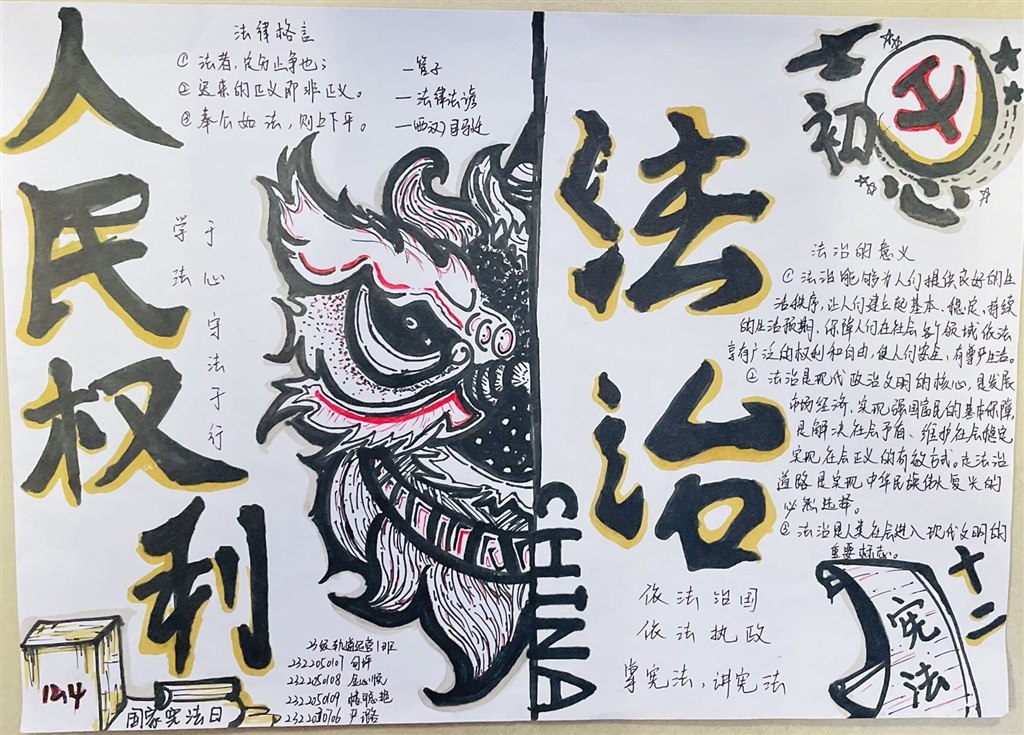 人民权利
法律格言
① 法者，定分止争也；
—管子
② 迟来的正义即非正义。
—法律法谚
③ 奉公如法，则上下平。
—（西汉）司马迁
学法于心
守法于行
CHINA
法治
不忘初心
法治的意义
① 法治能够为人们提供良好的生
活秩序，让人们建立起基本、稳定、持续
的生活预期，保障人们在社会各个领域依法
享有广泛的权利和自由，使人们安全、有尊严生活。
② 法治是现代政治文明的核心，是发展
市场经济，实现强国富民的基本保障，
是解决社会矛盾、维护社会稳定
实现社会正义的有效方式。走法治
道路是实现中华民族伟大复兴的
必然选择。
③ 法治是人类社会进入现代文明的
重要标志。
依法治国
依法执政
掌宪法，讲宪法
十二
宪法
12.4
国家宪法日
23级轨道运营1班
2322050107
2322050108
2322050109